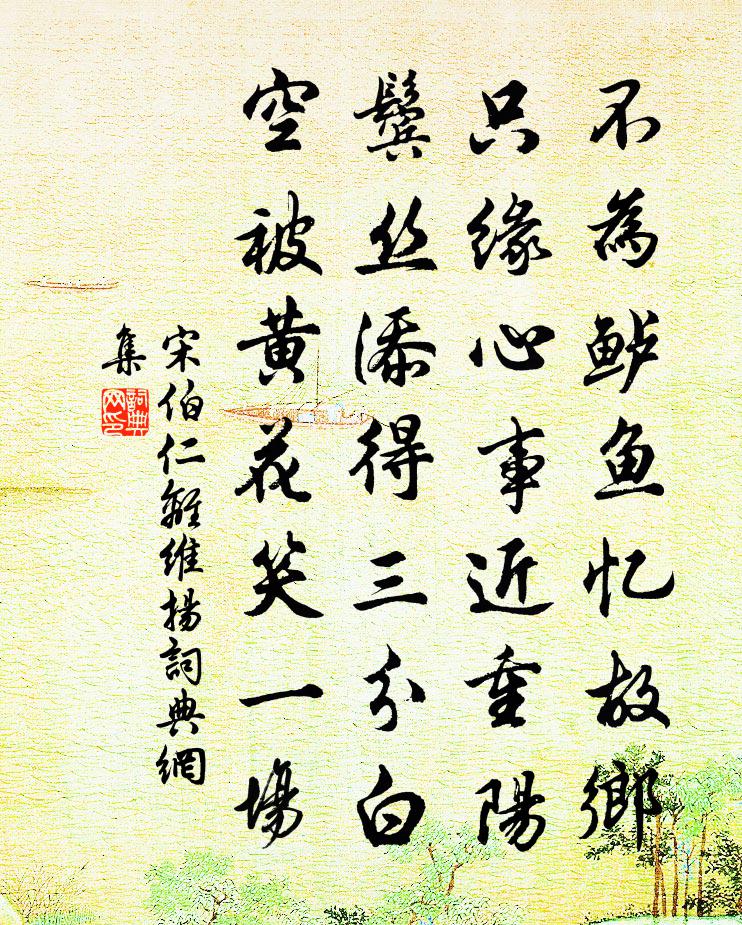 不為鲈鱼忆故鄉
只緣心事近重陽
鬓丝添得三分白
空被黄花笑一場
宋伯仁離維揚詞典網
集
詞典
网印